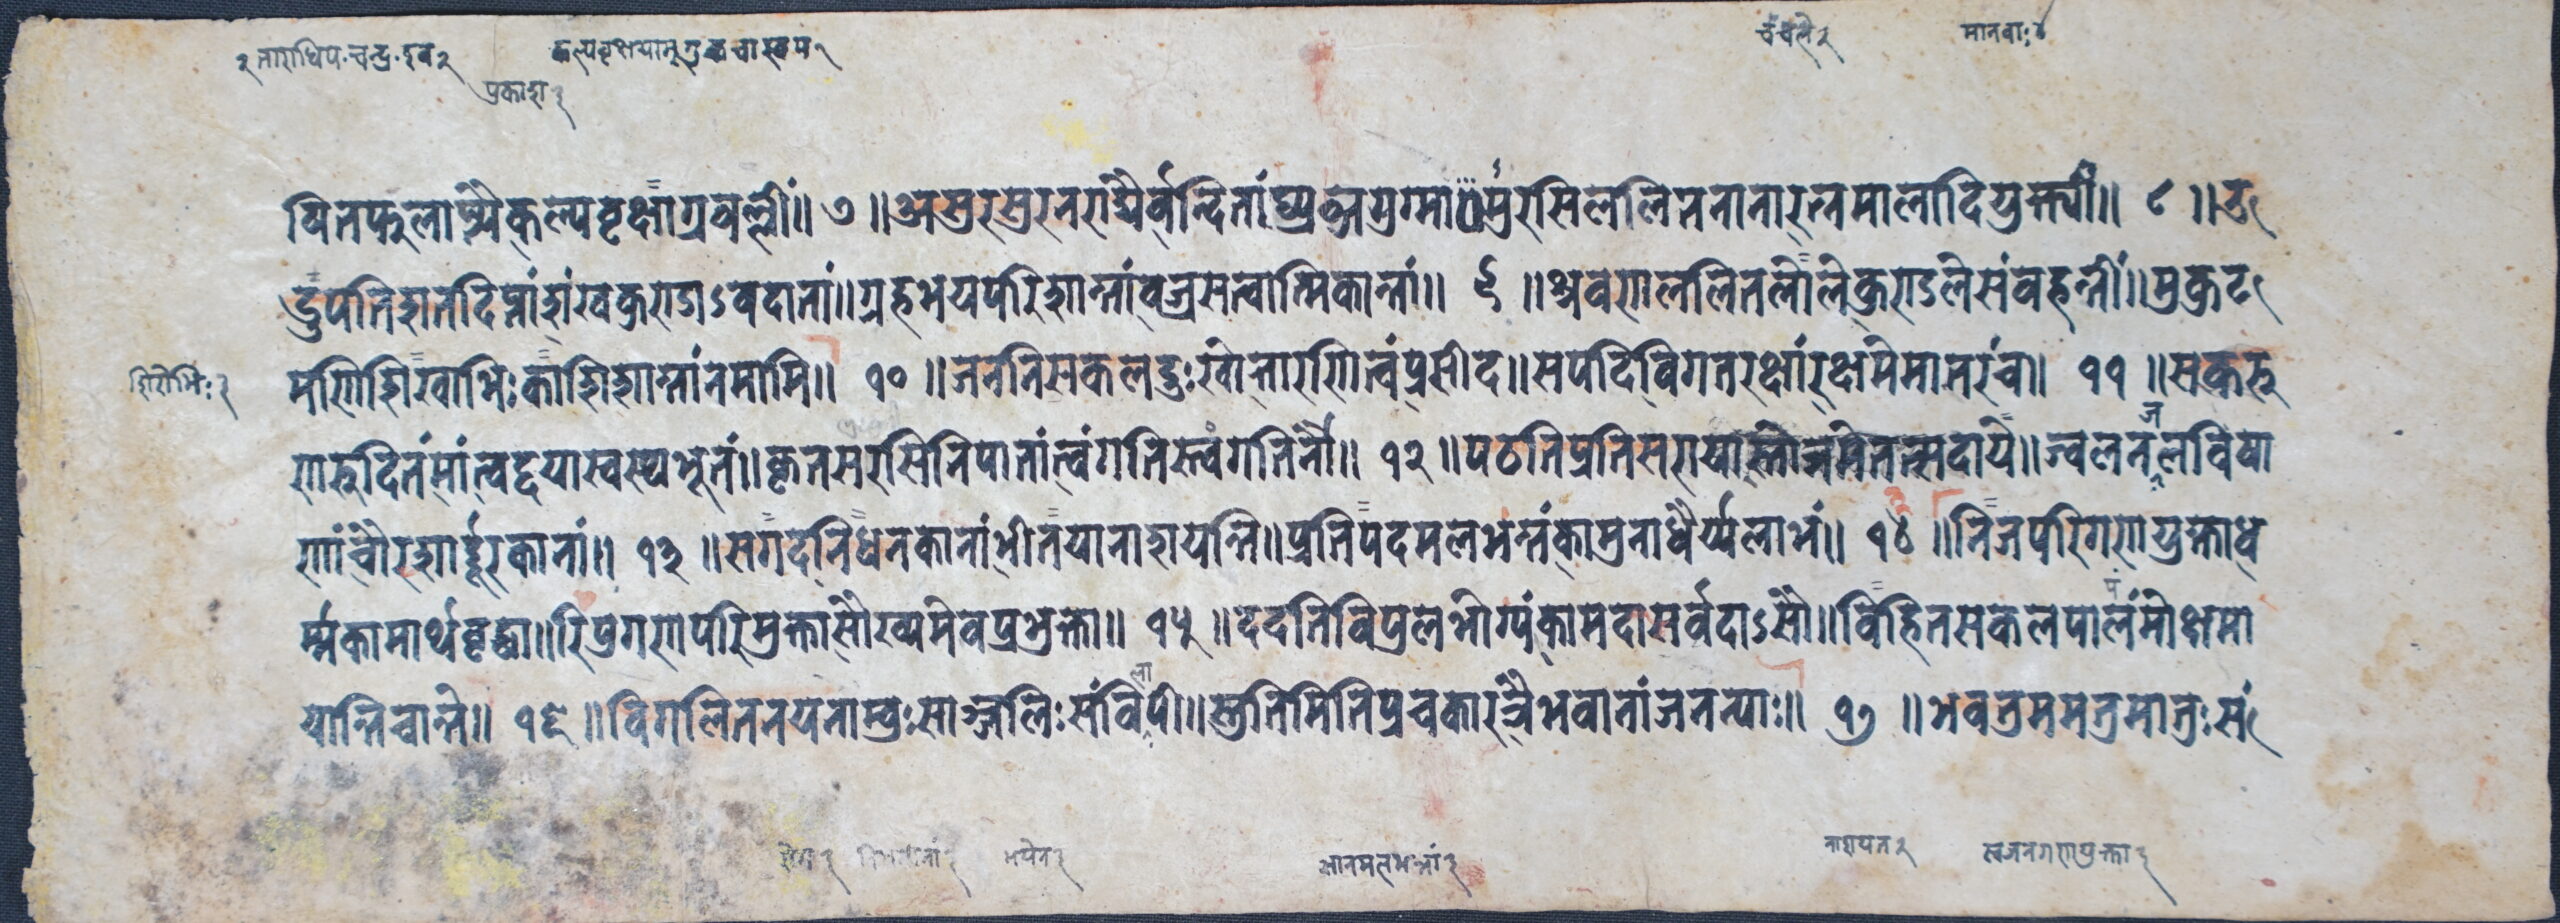 २ ताराधिप-चन्द्र-इव २
कल्पवृक्षयामृगुच्छचास्वप १
चंचले २
मानवाः ४
प्रकाश ३
यितफुलाग्र्यैकल्पवृक्षाग्रवल्लीं॥ ७ ॥असुरसुरनराग्र्यैर्वन्दितांघ्र्यब्जयुग्मा सुरसिललितनानारत्नमालादियुक्त्यीं॥ ८ ॥उ
डुपतिशतदिप्तांशंखकुराजाऽवदातां॥ग्रहभयपरिशान्तांवज्रसत्वात्मिकान्तां॥ ९ ॥श्रवणललितलोलेकुण्डलेसंवहन्तीं॥मुकुट
मणिशिखाभिःकाशिशान्तांनमामि॥ १० ॥जननिसकलदुःखोत्तारणित्वंप्रसीद॥सपदिविगतरक्षांरक्षमेमातरंच॥ ११ ॥सकरु
शिरोभिः ३
णरुदितंमांत्वद्दयास्वस्थभूतं॥कृतसरसिनिपातांत्वंगतिस्त्वंगतिर्नौ॥ १२ ॥पठतिप्रतिसरायास्तोत्रमेतत्सदाये॥ज्वलनजलविषा
णांचौरशार्दूरकानां॥ १३ ॥सगदनिधनकानांभीतयानाशयन्ति॥प्रतिपदमलभन्तंकामुनाधैर्य्यलाभं॥ १४ ॥निजपरिगणयुक्ताध
र्म्मकामार्थवृद्धा॥रिपुगणपरिमुक्तासौख्यमेवप्रभुक्ता॥ १५ ॥ददतिविपुलभोग्यंकामदासर्वदाऽसौ॥विहितसकलपापंलंमोक्षमा
यान्तिचान्ते॥ १६ ॥विगलितनयनाम्बुःसाञ्जलिःसंविलापी॥स्तुतिमितिप्रचकारंत्रैभवानांजनन्याः॥ १७ ॥भवतुममतुमातुःसं
नाशयत २
स्वजनगणयुक्ता ३